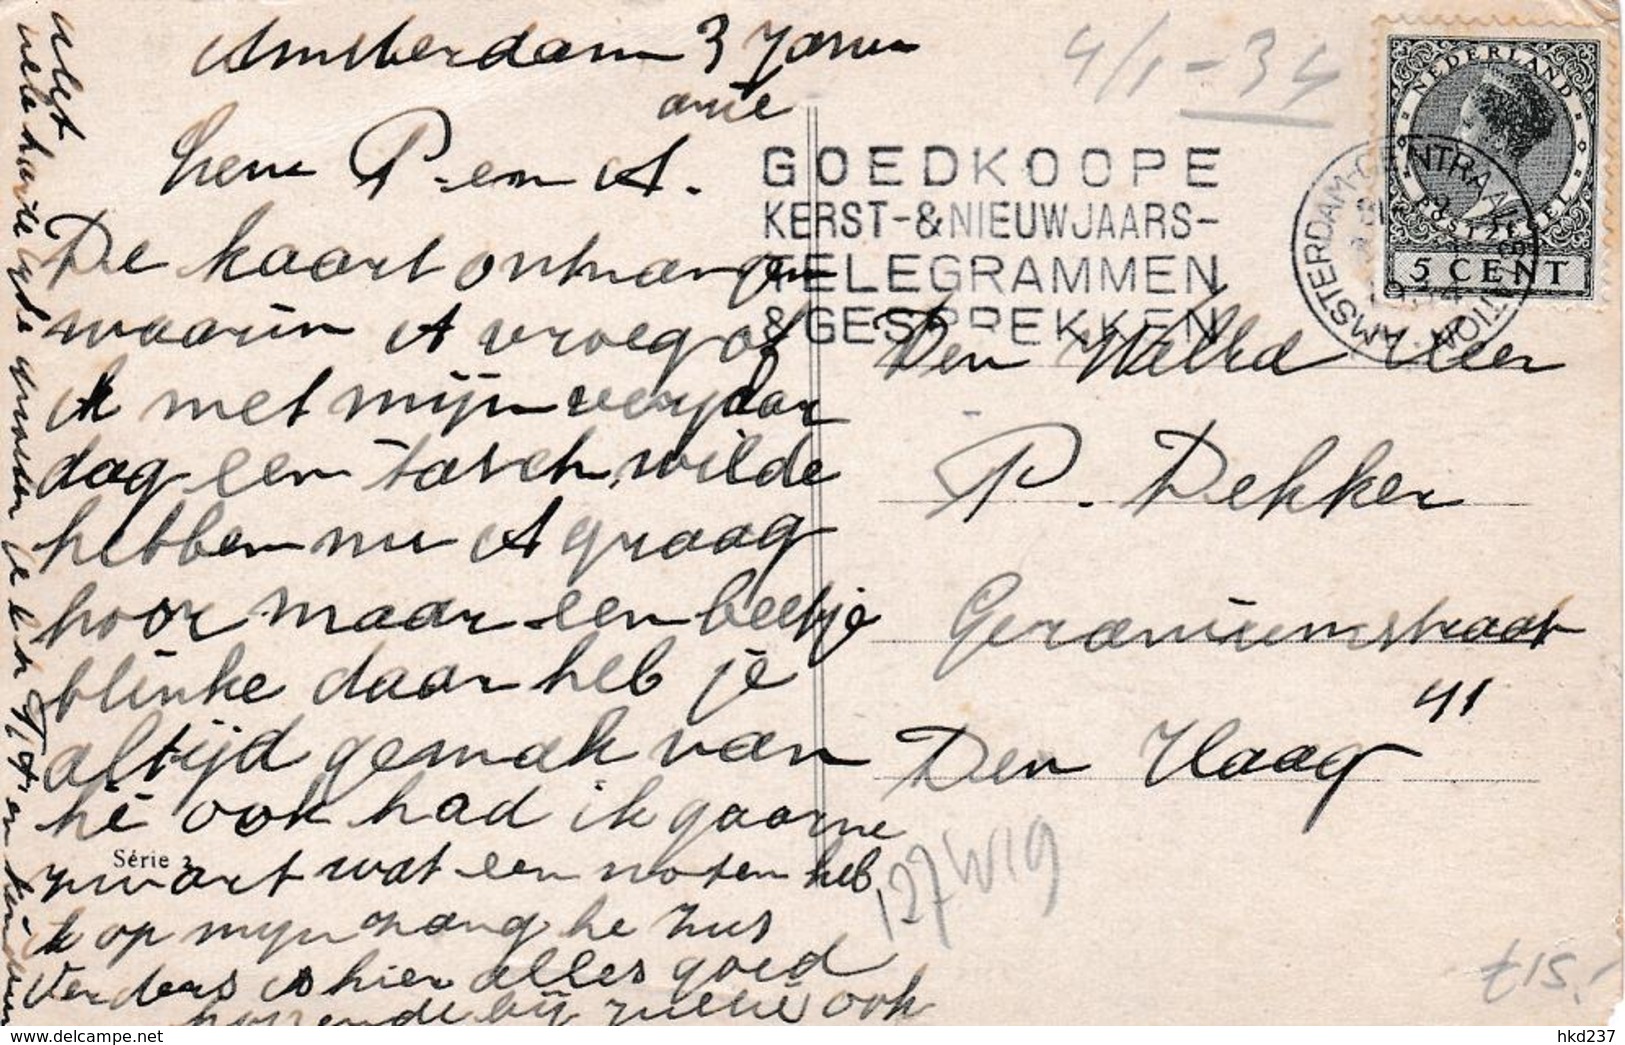 Amsterdam 3 Janu
arie
4/1 - 34
Lieve P. en A.
De kaart ontvangen
waarin A vroeg of
ik met mijn verjaar
dag een tasch wilde
hebben nu A graag
hoor maar een beetje
blinke daar heb je
altijd gemak van
hé ook had ik gaarne
zwart wat een noten heb
ik op mijn zang hé zus
Verders is hier alles goed
hopende bij jullie ook
Met
vele hartelijke groeten
en kinderen
GOEDKOOPE
KERST-&NIEUWJAARS-
TELEGRAMMEN
&GESPREKKEN
NEDERLAND
5 CENT
AMSTERDAM-CENTRAAL STATION
Den WelEd Heer
P. Dekker
Geraniumstraat
41
Den Haag
Série 3
127 WIG
£15.-
hkd237